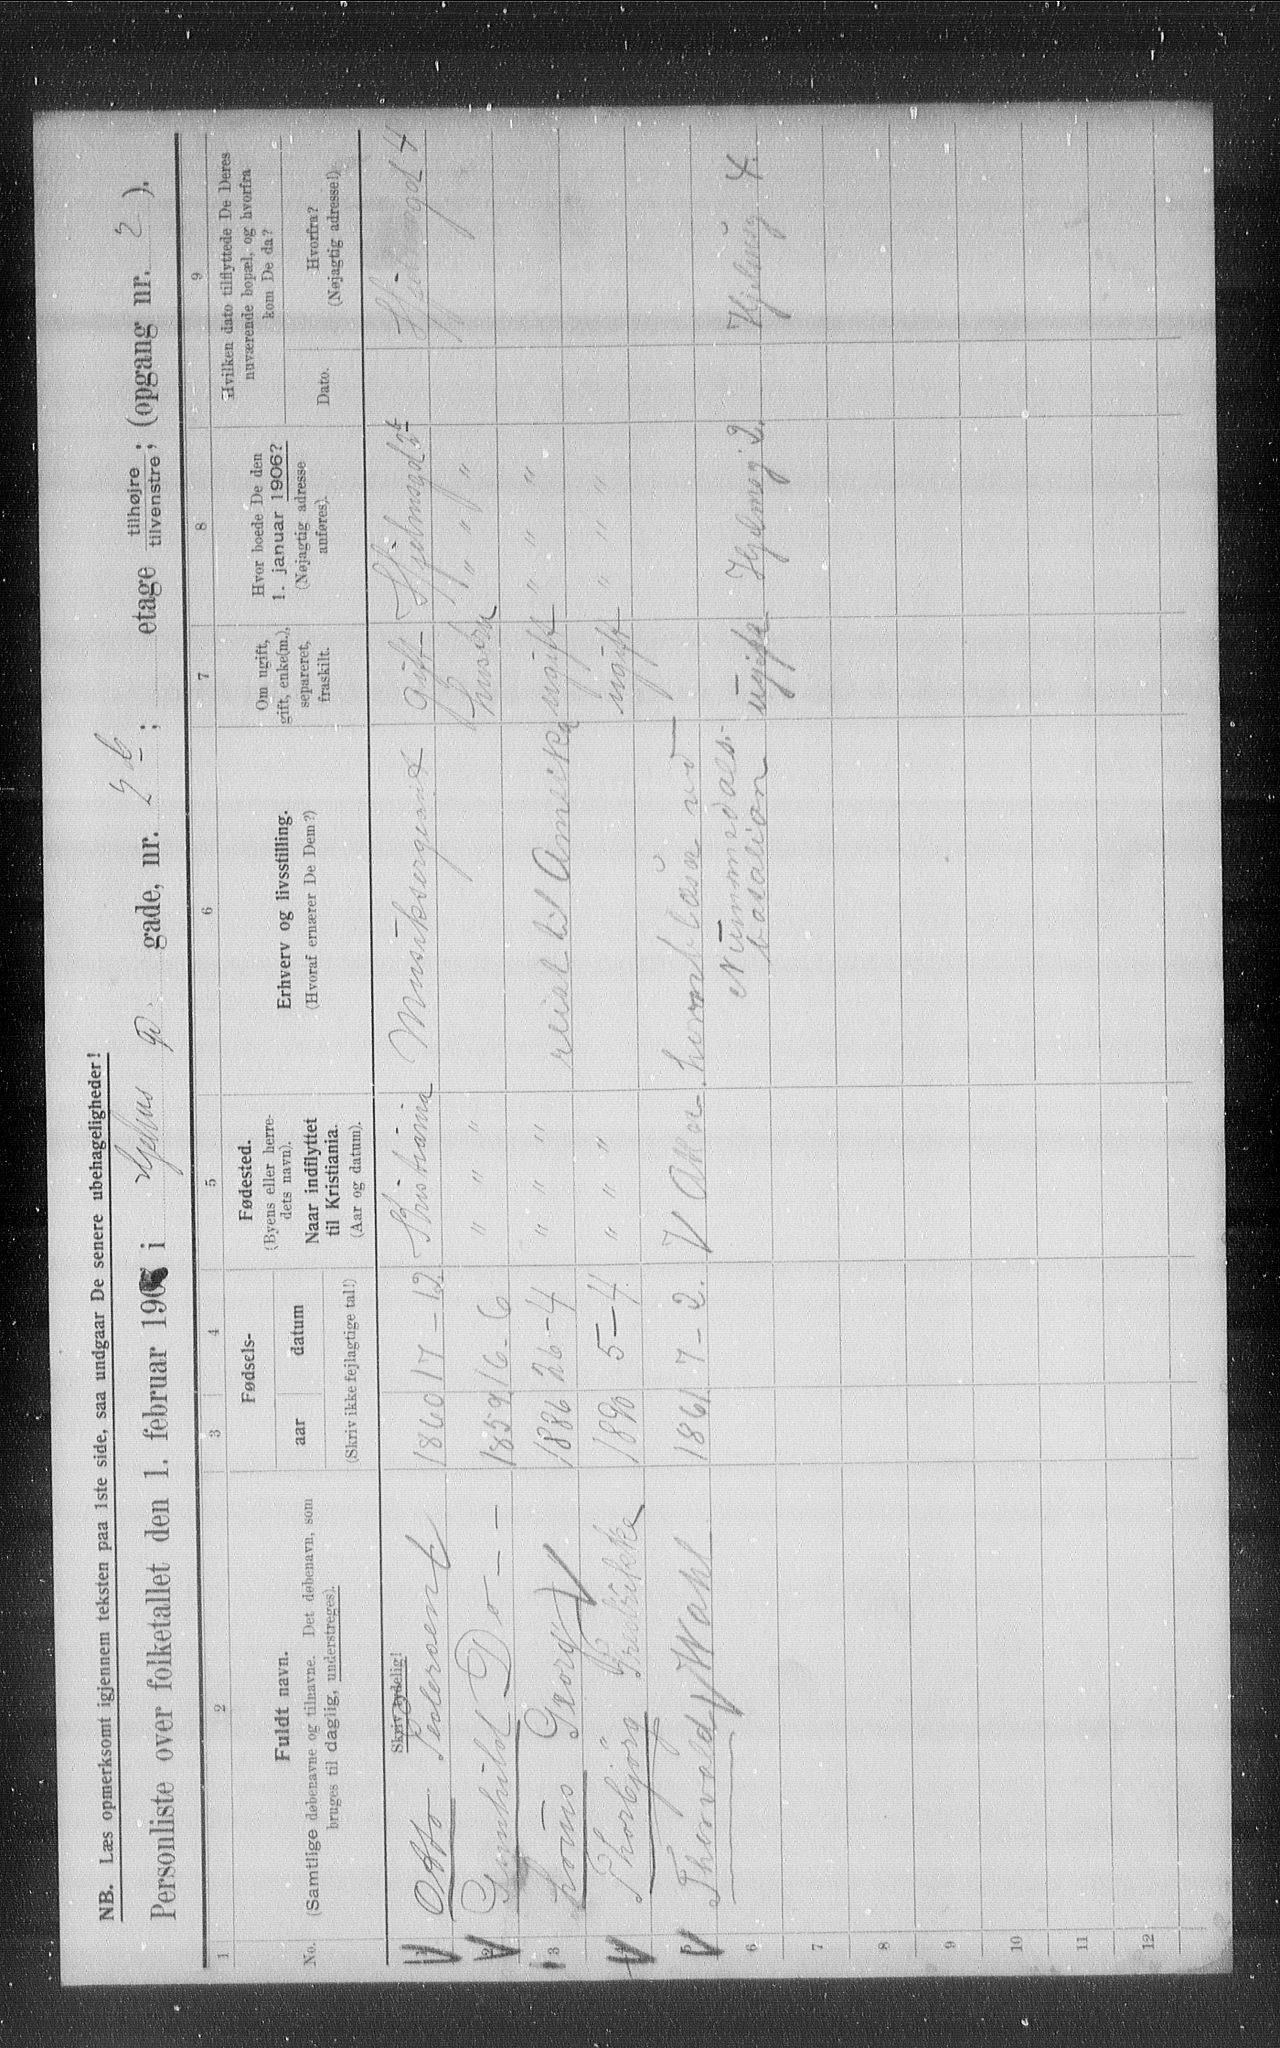 NB. Læs opmerksomt igjennem teksten paa 1ste side, saa undgaar De senere ubehageligheder!
Personliste over folketallet den 1. februar 190 i Hjelms gd. gade, nr. 2 b; etage tilhøjre; tilvenstre; (opgang nr. 2).
1 2 3 4 5 6 7 8 9
No.
Fuldt navn.
(Samtlige døbenavne og tilnavne. Det døbenavn, som
bruges til daglig, understreges).
Fødsels-
aar datum
(Skriv ikke fejlagtige tal!)
Fødested.
(Byens eller herre-
dets navn).
Naar indflyttet
til Kristiania.
(Aar og datum).
Erhverv og livsstilling.
(Hvoraf ernærer De Dem?)
Om ugift,
gift, enke(m.),
separeret,
fraskilt.
Hvor boede De den
1. januar 1906?
(Nøjagtig adresse
anføres).
Hvilken dato tilflyttede De Deres
nuværende bopæl, og hvorfra
kom De da?
Dato.
Hvorfra?
(Nøjagtig adresse!)
Skriv tydelig!
1 Otto Pedersen 1860 17 - 12 Kristiania Musiksergeant gift Hjelmsgd 2b Hjelmsgd 4
2 Gunhild Do - - 1859 16 - 6 " " " hustru " " "
3 Georg 1886 26 - 4 " " " reist til Amerika ugift " " "
4 Thorbjörg Fredrikke 1890 5 - 4 " " " ugift " " "
5 Thorvald Wahl 1861 7 - 2. Aker hornblåser ved
6 Nummedals- ugift Hjelmsg. 2. Hjelmsg 4.
bataljon
7
8
9
10
11
12